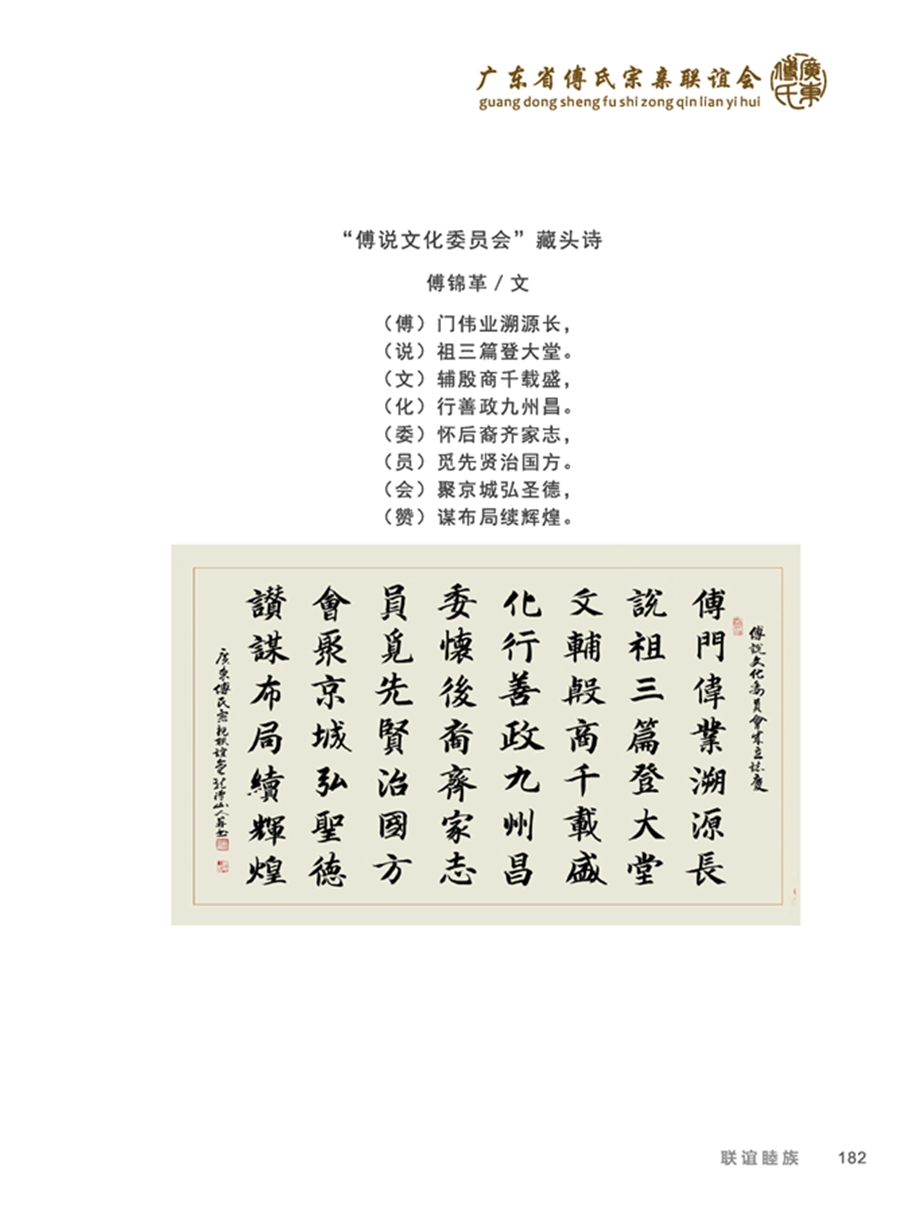 广东省傅氏宗亲联谊会
guang dong sheng fu shi zong qin lian yi hui
廣東
傅氏
“傅说文化委员会”藏头诗
傅锦革 / 文
（傅）门伟业溯源长，
（说）祖三篇登大堂。
（文）辅殷商千载盛，
（化）行善政九州昌。
（委）怀后裔齐家志，
（员）觅先贤治国方。
（会）聚京城弘圣德，
（赞）谋布局续辉煌。
傅說文化委員會成立誌慶
傅門偉業溯源長
說祖三篇登大堂
文輔殷商千載盛
化行善政九州昌
委懷後裔齊家志
員覓先賢治國方
會聚京城弘聖德
讃謀布局續輝煌
廣東傅氏宗親聯誼會
联谊睦族
182